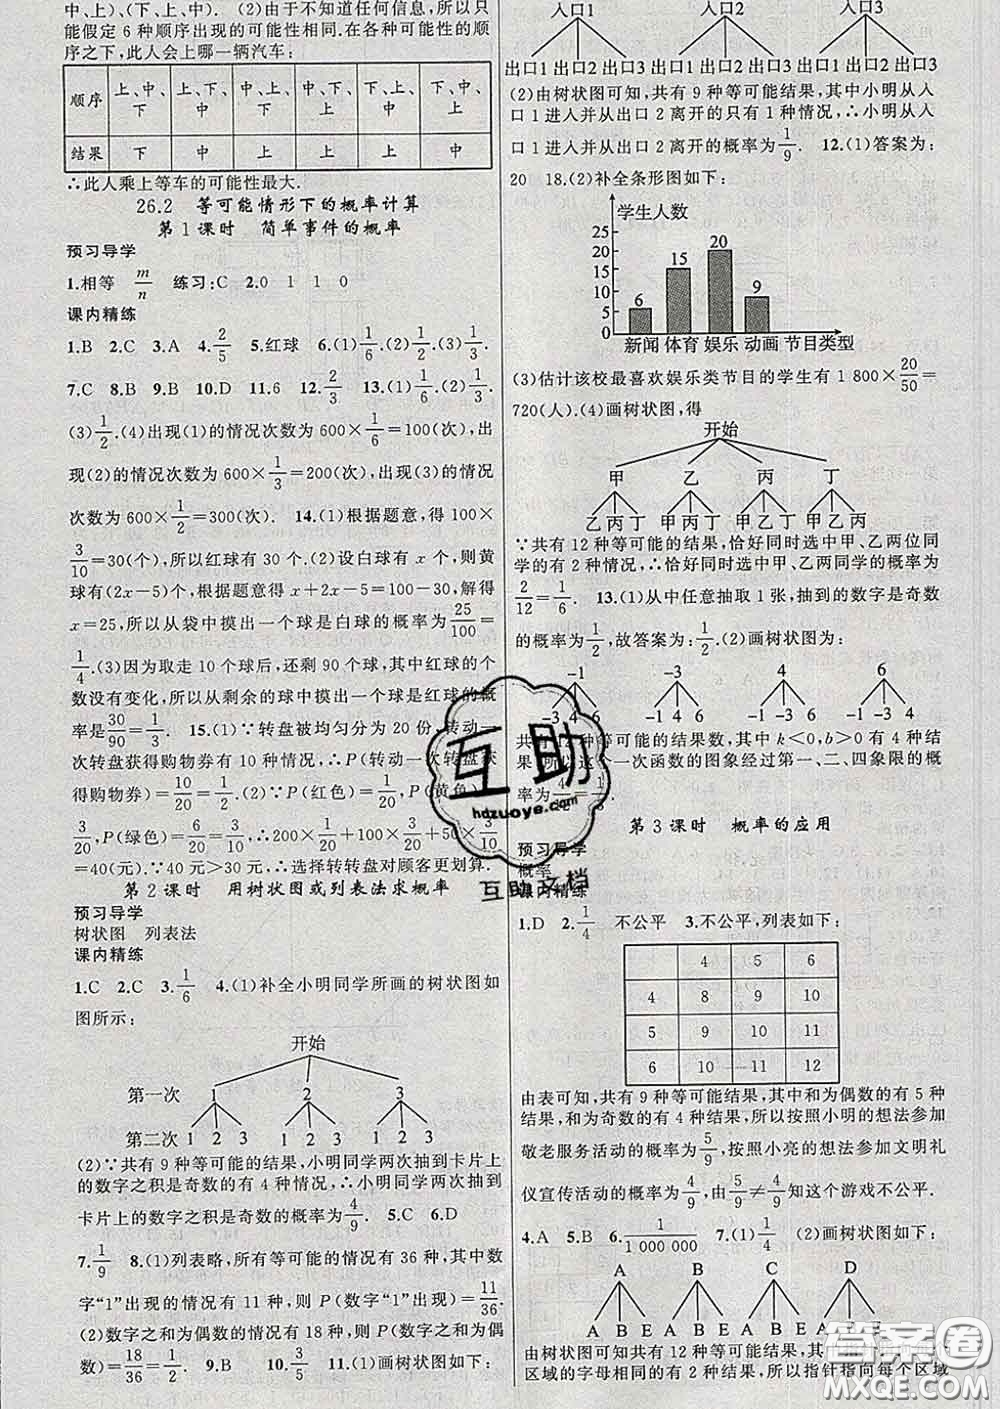 中、上)、(下、上、中). (2)由于不知道任何信息,所以只
能假定 6 种顺序出现的可能性相同.在各种可能性的顺
序之下,此人会上哪一辆汽车:
顺序 上、中、下 上、下、中 中、上、下 中、下、上 下、上、中 下、中、上
结果 下 中 上 上 上 中
∴此人乘上等车的可能性最大.
26.2 等可能情形下的概率计算
第 1 课时 简单事件的概率
预习导学
1.相等 m/n 练习:C 2.0 1 1 0
课内精练
1.B 2.C 3.A 4.2/5 5.红球 6.(1)1/6.(2)1/2.(3)1/3.
7.C 8.B 9.B 10.D 11.6 12.2/3 13.(1)1/6.(2)1/3.
(3)1/2.(4)出现(1)的情况次数为 600×1/6=100(次),出
现(2)的情况次数为 600×1/3=200(次),出现(3)的情况
次数为 600×1/2=300(次). 14.(1)根据题意,得 100×
3/10=30(个),所以红球有 30 个.(2)设白球有 x 个,则黄
球有(2x-5)个,根据题意得 x+2x-5=100-30,解得
x=25,所以从袋中摸出一个球是白球的概率为25/100=
1/4.(3)因为取走 10 个球后,还剩 90 个球,其中红球的个
数没有变化,所以从剩余的球中摸出一个球是红球的概
率是30/90=1/3. 15.(1)∵转盘被均匀分为 20 份,转动一
次转盘获得购物券有 10 种情况,∴P(转动一次转盘获
得购物券)=10/20=1/2.(2)∵P(红色)=1/20,P(黄色)=
3/20,P(绿色)=6/20=3/10,∴200×1/20+100×3/20+50×3/10
=40(元).∵40 元>30 元,∴选择转转盘对顾客更划算.
第 2 课时 用树状图或列表法求概率
预习导学
树状图 列表法
课内精练
1.C 2.C 3.1/6 4.(1)补全小明同学所画的树状图如
图所示:
开始
第一次 1 2 3
第二次 1 2 3 1 2 3 1 2 3
(2)∵共有 9 种等可能的结果,小明同学两次抽到卡片上
的数字之积是奇数的有 4 种情况,∴小明同学两次抽到
卡片上的数字之积是奇数的概率为4/9. 5.C 6.D
7.1/9 8.(1)列表略,所有等可能的情况有 36 种,其中数
字“1”出现的情况有 11 种,则 P(数字“1”出现)=11/36.
(2)数字之和为偶数的有 18 种,则 P(数字之和为偶
数)=18/36=1/2. 9.B 10.3/5 11.(1)画树状图如下:
入口1 入口2 入口3
出口1 出口2 出口3 出口1 出口2 出口3 出口1 出口2 出口3
(2)由树状图可知,共有 9 种等可能结果,其中小明从入
口 1 进入并从出口 2 离开的只有 1 种情况,∴小明从入
口 1 进入并从出口 2 离开的概率为1/9. 12.(1)答案为:
20 18.(2)补全条形图如下:
学生人数
25
20
15
10
5
0
6 15 20 9
新闻 体育 娱乐 动画 节目类型
(3)估计该校最喜欢娱乐类节目的学生有 1 800×20/50=
720(人).(4)画树状图,得
开始
甲 乙 丙 丁
乙 丙 丁 甲 丙 丁 甲 乙 丁 甲 乙 丙
∵共有 12 种等可能的结果,恰好同时选中甲、乙两位同
学的有 2 种情况,∴恰好同时选中甲、乙两同学的概率为
2/12=1/6. 13.(1)从中任意抽取 1 张,抽到的数字是奇数
的概率为1/2,故答案为:1/2.(2)画树状图为:
-1 -3 4 6
-3 4 6 -1 4 6 -1 -3 6 -1 -3 4
共有 12 种等可能的结果数,其中 k<0,b>0 有 4 种结
果,所以这个一次函数的图象经过第一、二、四象限的概
率为4/12=1/3.
第 3 课时 概率的应用
预习导学
概率
课内精练
1.D 2.1/4 不公平 3.不公平,列表如下:
4 5 6
4 8 9 10
5 9 10 11
6 10 11 12
由表可知,共有 9 种等可能结果,其中和为偶数的有 5 种
结果,和为奇数的有 4 种结果,所以按照小明的想法参加
敬老服务活动的概率为5/9,按照小亮的想法参加文明礼
仪宣传活动的概率为4/9,由5/9≠4/9知这个游戏不公平.
4.A 5.B 6.1/1 000 000 7.(1)1/4 (2)画树状图如下:
A B C D
A B E A B E A B E A B E
由树状图可知共有 12 种等可能结果,其中
区域的字母相同的有 2 种结果,所以指针指向每个区域
互助
hdzuoye.com
互助文档
答案圈
MXQE.COM